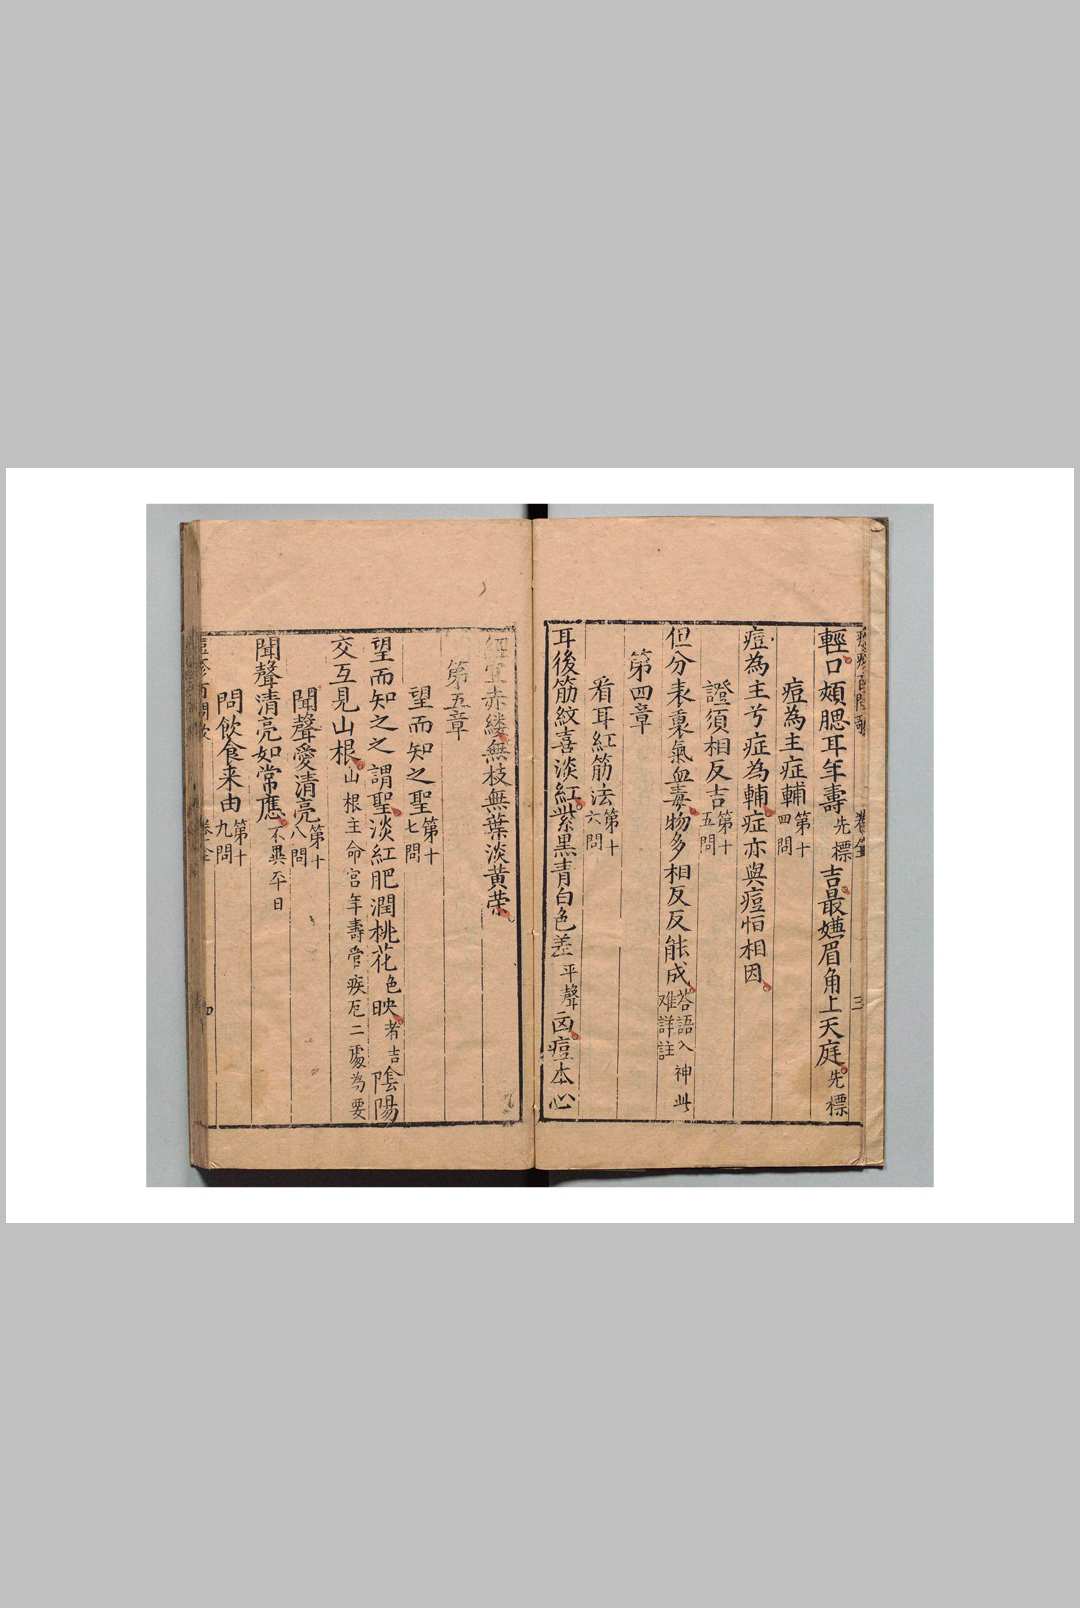 輕口頰腮耳年壽先標吉最嫌眉角上天庭先標
痘為主症輔第十四問
痘為主兮症為輔症亦與痘怕相因
證須相反吉第十五問
但分表裏氣血毒物多相反反能成答語入神此难詳註
第四章
看耳紅筋法第十六問
耳後筋紋喜淡紅紫黑青白色差平聲凶痘本心
赤縷無枝無葉淡黃荣
第五章
望而知之聖第十七問
望而知之之謂聖淡紅肥潤桃花色映者吉陰陽
交互見山根山根主命宮年壽管疾厄二處為要
聞聲愛清亮第十八問
聞聲清亮如常應不異平日
問飲食来由第十九問